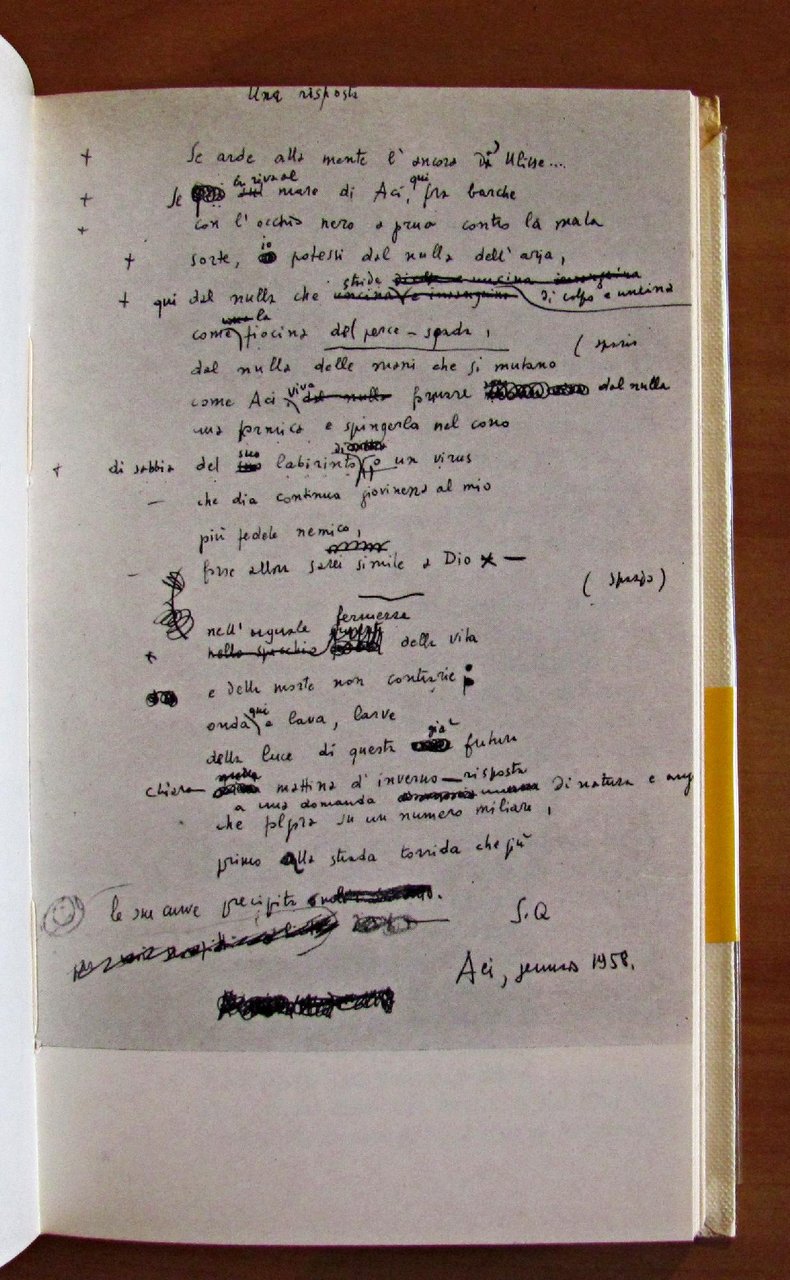 Una risposta
+ Se arde alla mente l'ancora di Ulisse...
+ Se in riva al mare di Aci, qui fra barche
+ con l'occhio nero a prua contro la mala
+ sorte, io potessi dal nulla dell'aria,
+ qui dal nulla che stride di colpo e uncina
come la fiocina del pesce-spada,
(spazio
dal nulla delle mani che si mutano
come Aci viva dal nulla formare dal nulla
una formica e spingerla nel cono
+ di sabbia del suo labirinto, o un virus
che dia continua giovinezza al mio
più fedele nemico,
forse allora sarei simile a Dio —
(spazio)
nell'eguale fermezza
nello specchio della vita
e della morte non contrarie;
onda qui e lava, larve
della luce di questa già futura
chiara mattina d'inverno — risposta
a una domanda di natura e ang
che palpita su un numero miliare,
primo alla strada torrida che più
le sue curve precipita
S.Q
Aci, gennaio 1958.